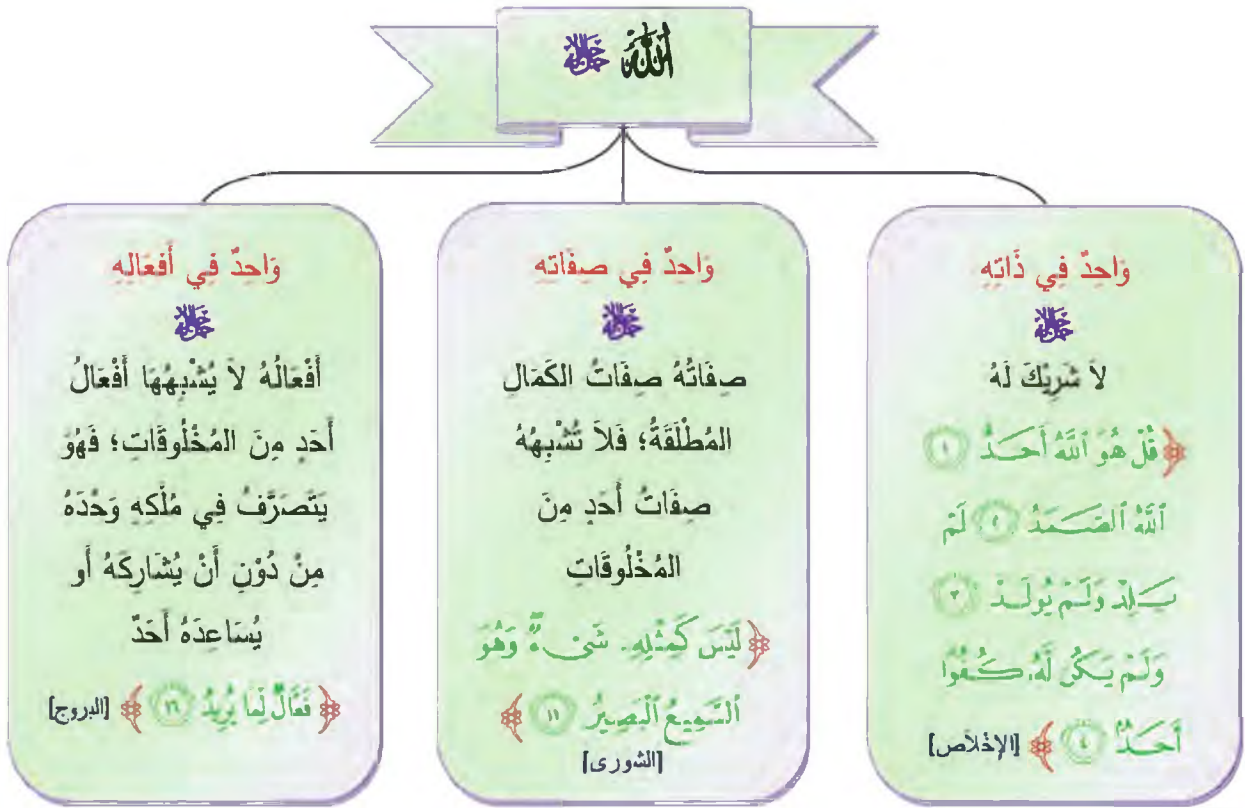 الله ﷻ
وَاحِدٌ فِي ذَاتِهِ
ﷻ
لاَ شَرِيْكَ لَهُ
﴿قُلْ هُوَ ٱللَّهُ أَحَـدٌ ١
ٱللَّهُ ٱلصَّـمَدُ ٢ لَمْ
يَـلِدْ وَلَـمْ يُولَـدْ ٣
وَلَمْ يَـكُن لَّهُۥ كُـفُوًا
أَحَـدٌۢ ٤﴾ [الإِخْلاَص]
وَاحِدٌ فِي صِفَاتِهِ
ﷻ
صِفَاتُهُ صِفَاتُ الكَمَالِ
المُطْلَقَةُ؛ فَلاَ تُشْبِهُهُ
صِفَاتُ أَحَدٍ مِنَ
المُخْلُوقَاتِ
﴿لَيْسَ كَمِثْلِهِۦ شَىْءٌ وَهُوَ
ٱلسَّمِيعُ ٱلْبَصِيرُ ١١﴾
[الشورى]
وَاحِدٌ فِي أَفعَالِهِ
ﷻ
أَفْعَالُهُ لاَ يُشْبِهُهَا أَفْعَالُ
أَحَدٍ مِنَ المُخْلُوقَاتِ؛ فَهُوَ
يَتَصَرَّفُ فِي مُلْكِهِ وَحْدَهُ
مِنْ دُوْنِ أَنْ يُشَارِكَهُ أَو
يُسَاعِدَهُ أَحَدٌ
﴿فَعَّالٌ لِّمَا يُرِيدُ ١٦﴾ [البروج]